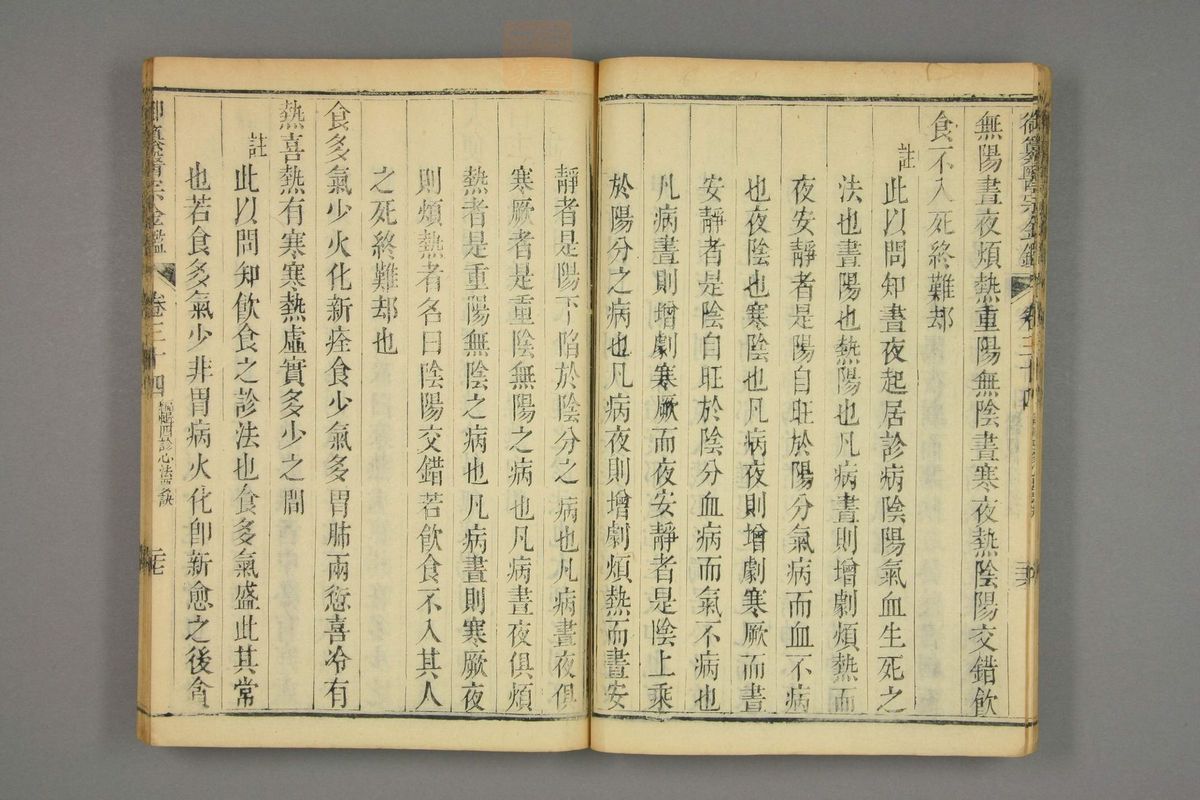 御纂醫宗金鑑 卷三十四
無陽晝夜煩熱重陽無陰晝寒夜熱陰陽交錯飲
食不入死終難却
註
此以問知晝夜起居診病陰陽氣血生死之
法也晝陽也熱陽也凡病晝則增劇煩熱而
夜安靜者是陽自旺於陽分氣病而血不病
也夜陰也寒陰也凡病夜則增劇寒厥而晝
安靜者是陰自旺於陰分血病而氣不病也
凡病晝則增劇寒厥而夜安靜者是陰上乘
於陽分之病也凡病夜則增劇煩熱而晝安
靜者是陽下陷於陰分之病也凡病晝夜俱
寒厥者是重陰無陽之病也凡病晝夜俱煩
熱者是重陽無陰之病也凡病晝則寒厥夜
則煩熱者名曰陰陽交錯若飲食不入其人
之死終難却也
食多氣少火化新痊食少氣多胃肺兩愆喜冷有
熱喜熱有寒寒熱虛實多少之間
註
此以問知飲食之診法也食多氣盛此其常
也若食多氣少非胃病火化卽新愈之後貪
御纂醫宗金鑑 卷三十四 編輯四診心法要訣